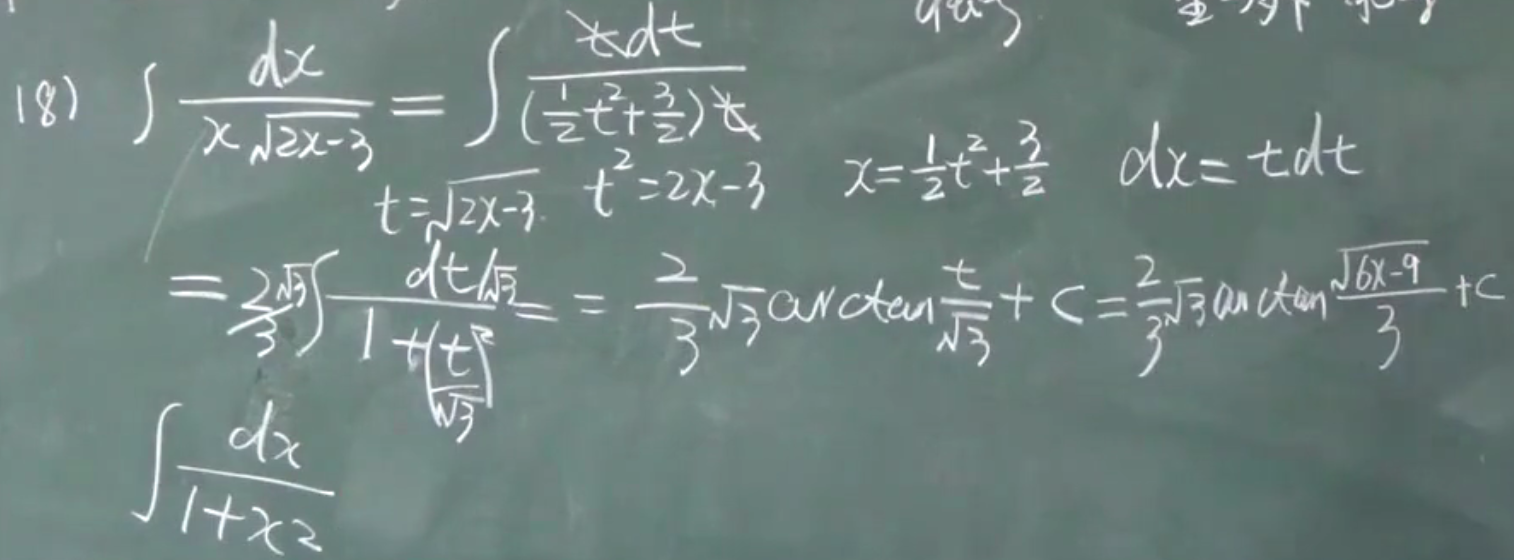 18) ∫ dx/(x√(2x-3)) = ∫ tdt/((1/2 t²+3/2)t)
t=√(2x-3) t²=2x-3 x=1/2 t²+3/2 dx=tdt
= 2√3/3 ∫ (dt/√3)/(1+(t/√3)²) = 2/3 √3 arctan t/√3 + C = 2/3 √3 arctan √(6x-9)/3 + C
∫ dx/(1+x²)